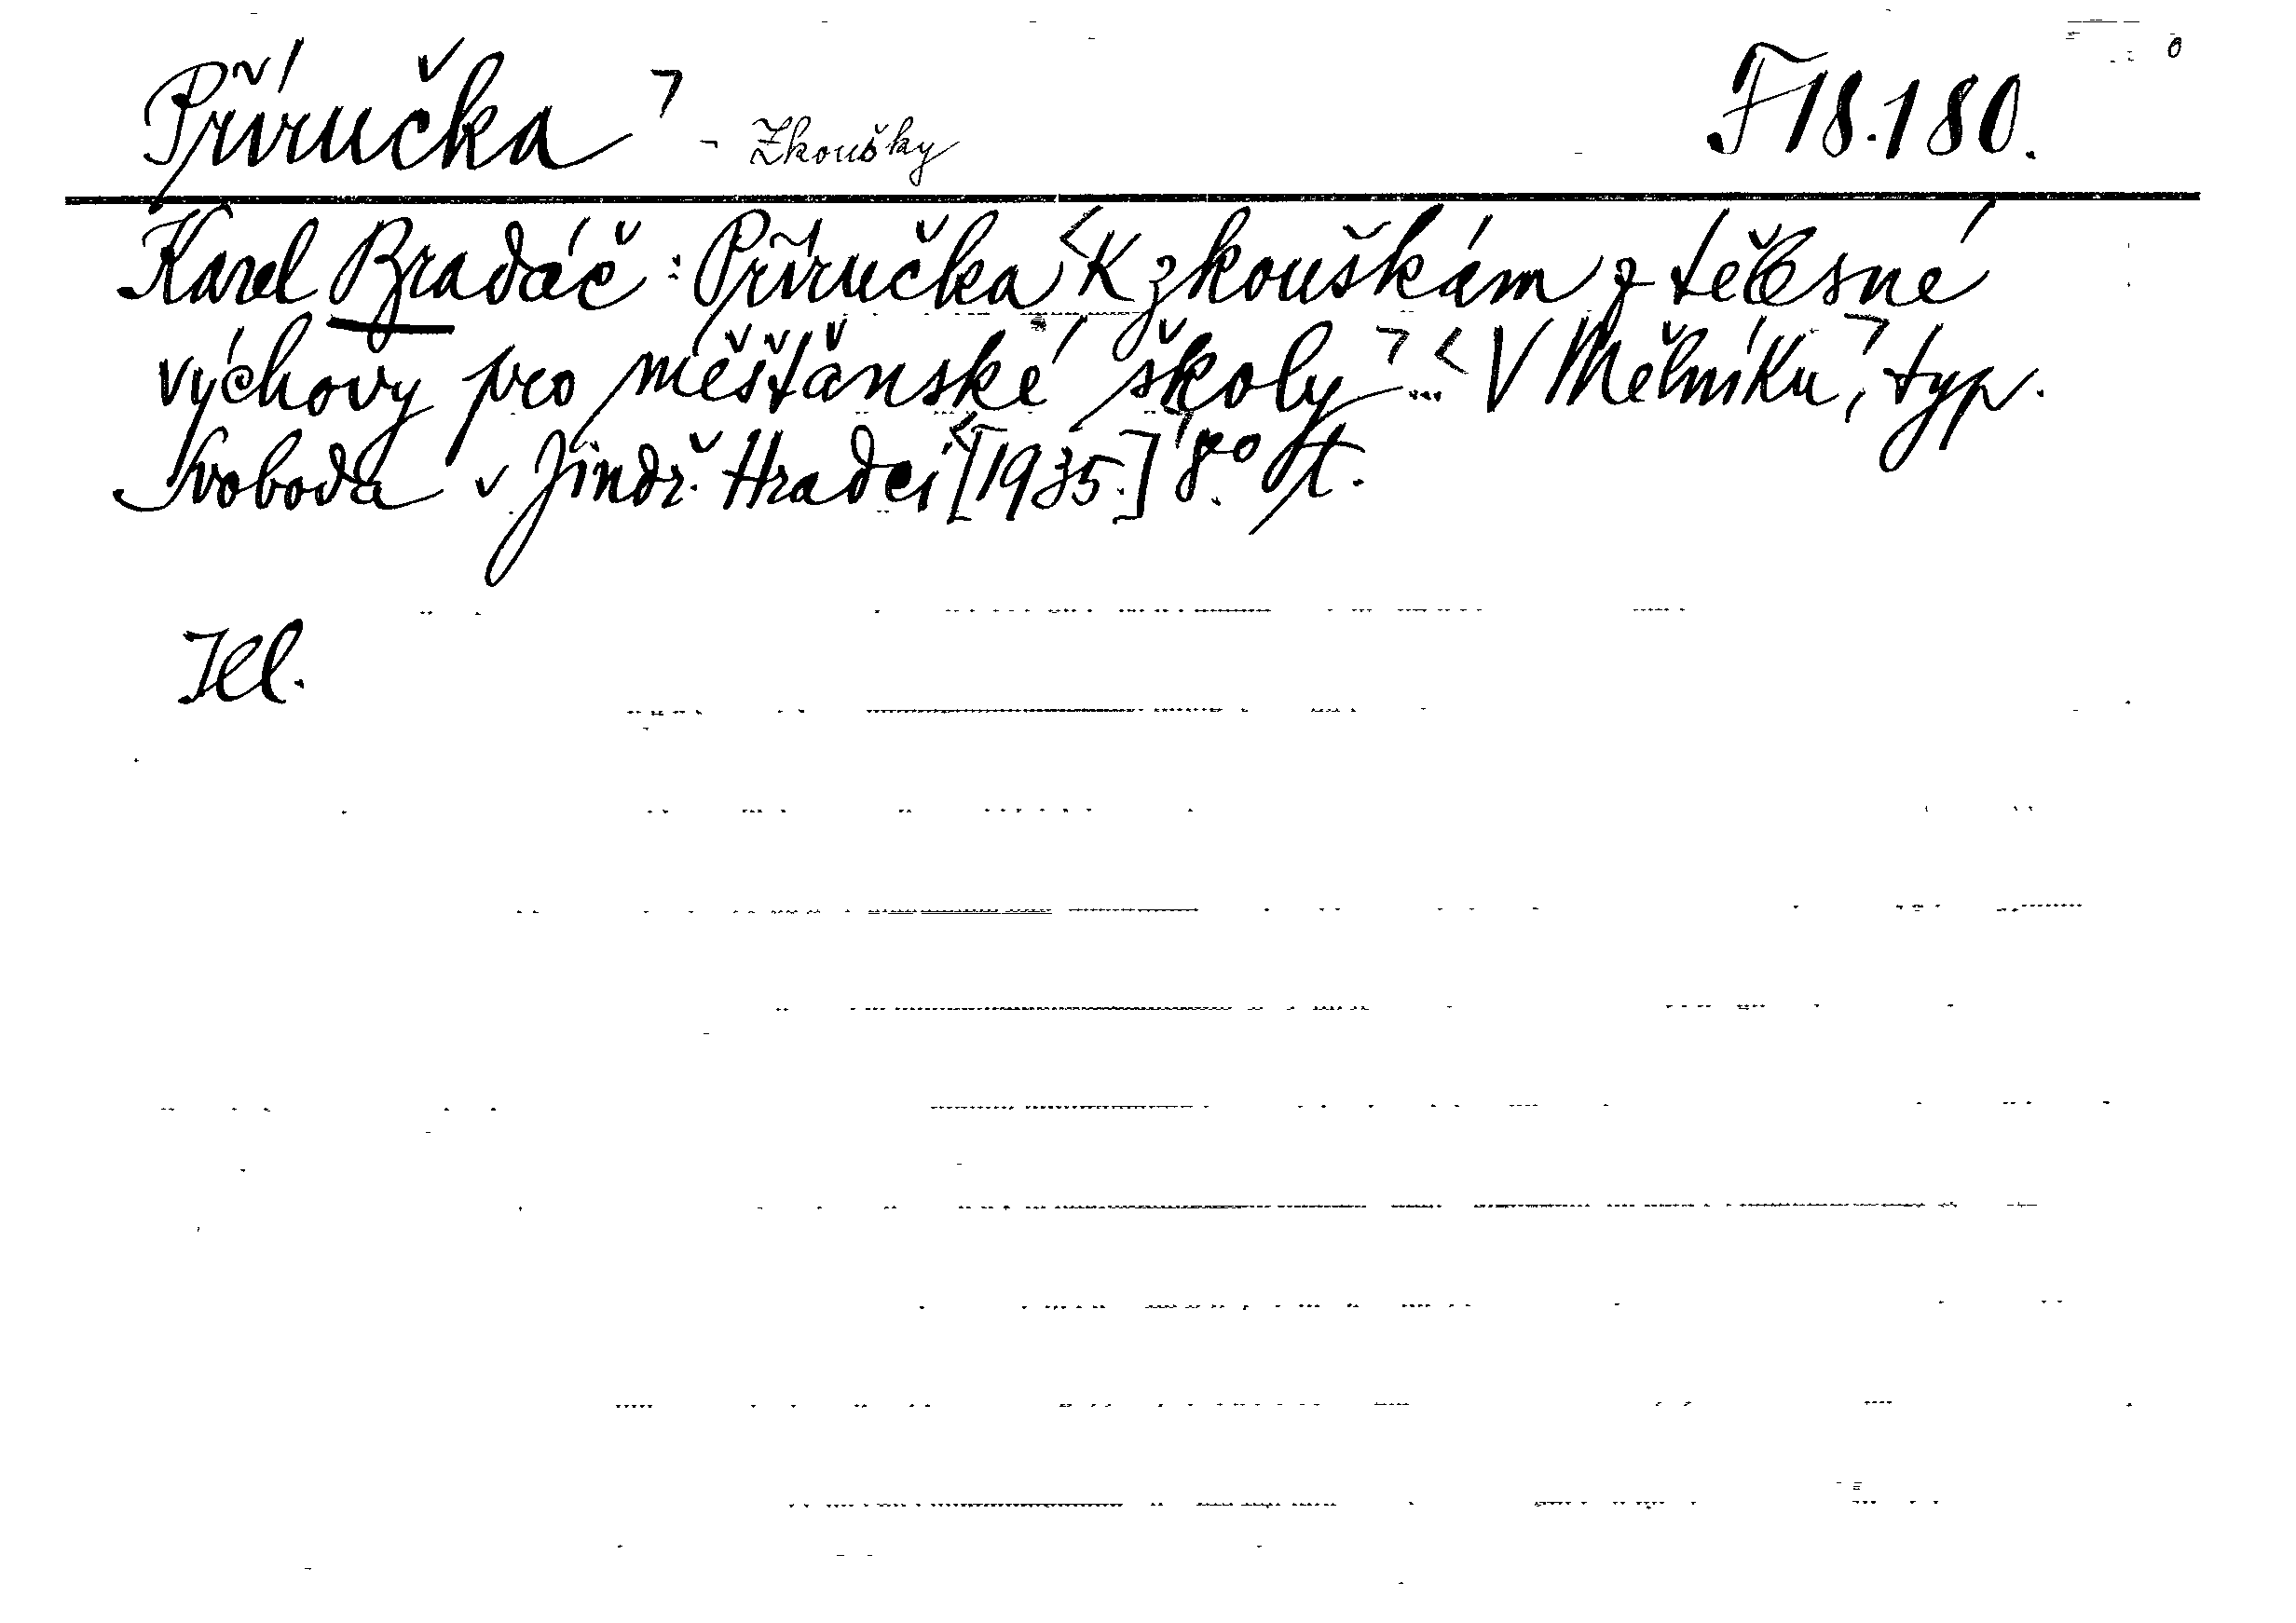 Příručka ⌝ - Zkoušky F 18.180.
Karel Bradáč: Příručka < k zkouškám z tělesné
výchovy pro měšťanské školy ⌝ ... < V Mělníku, ⌝ typ.
Svoboda v Jindř. Hradci < [1935.] ⌝ 8.° Št.
Ill.